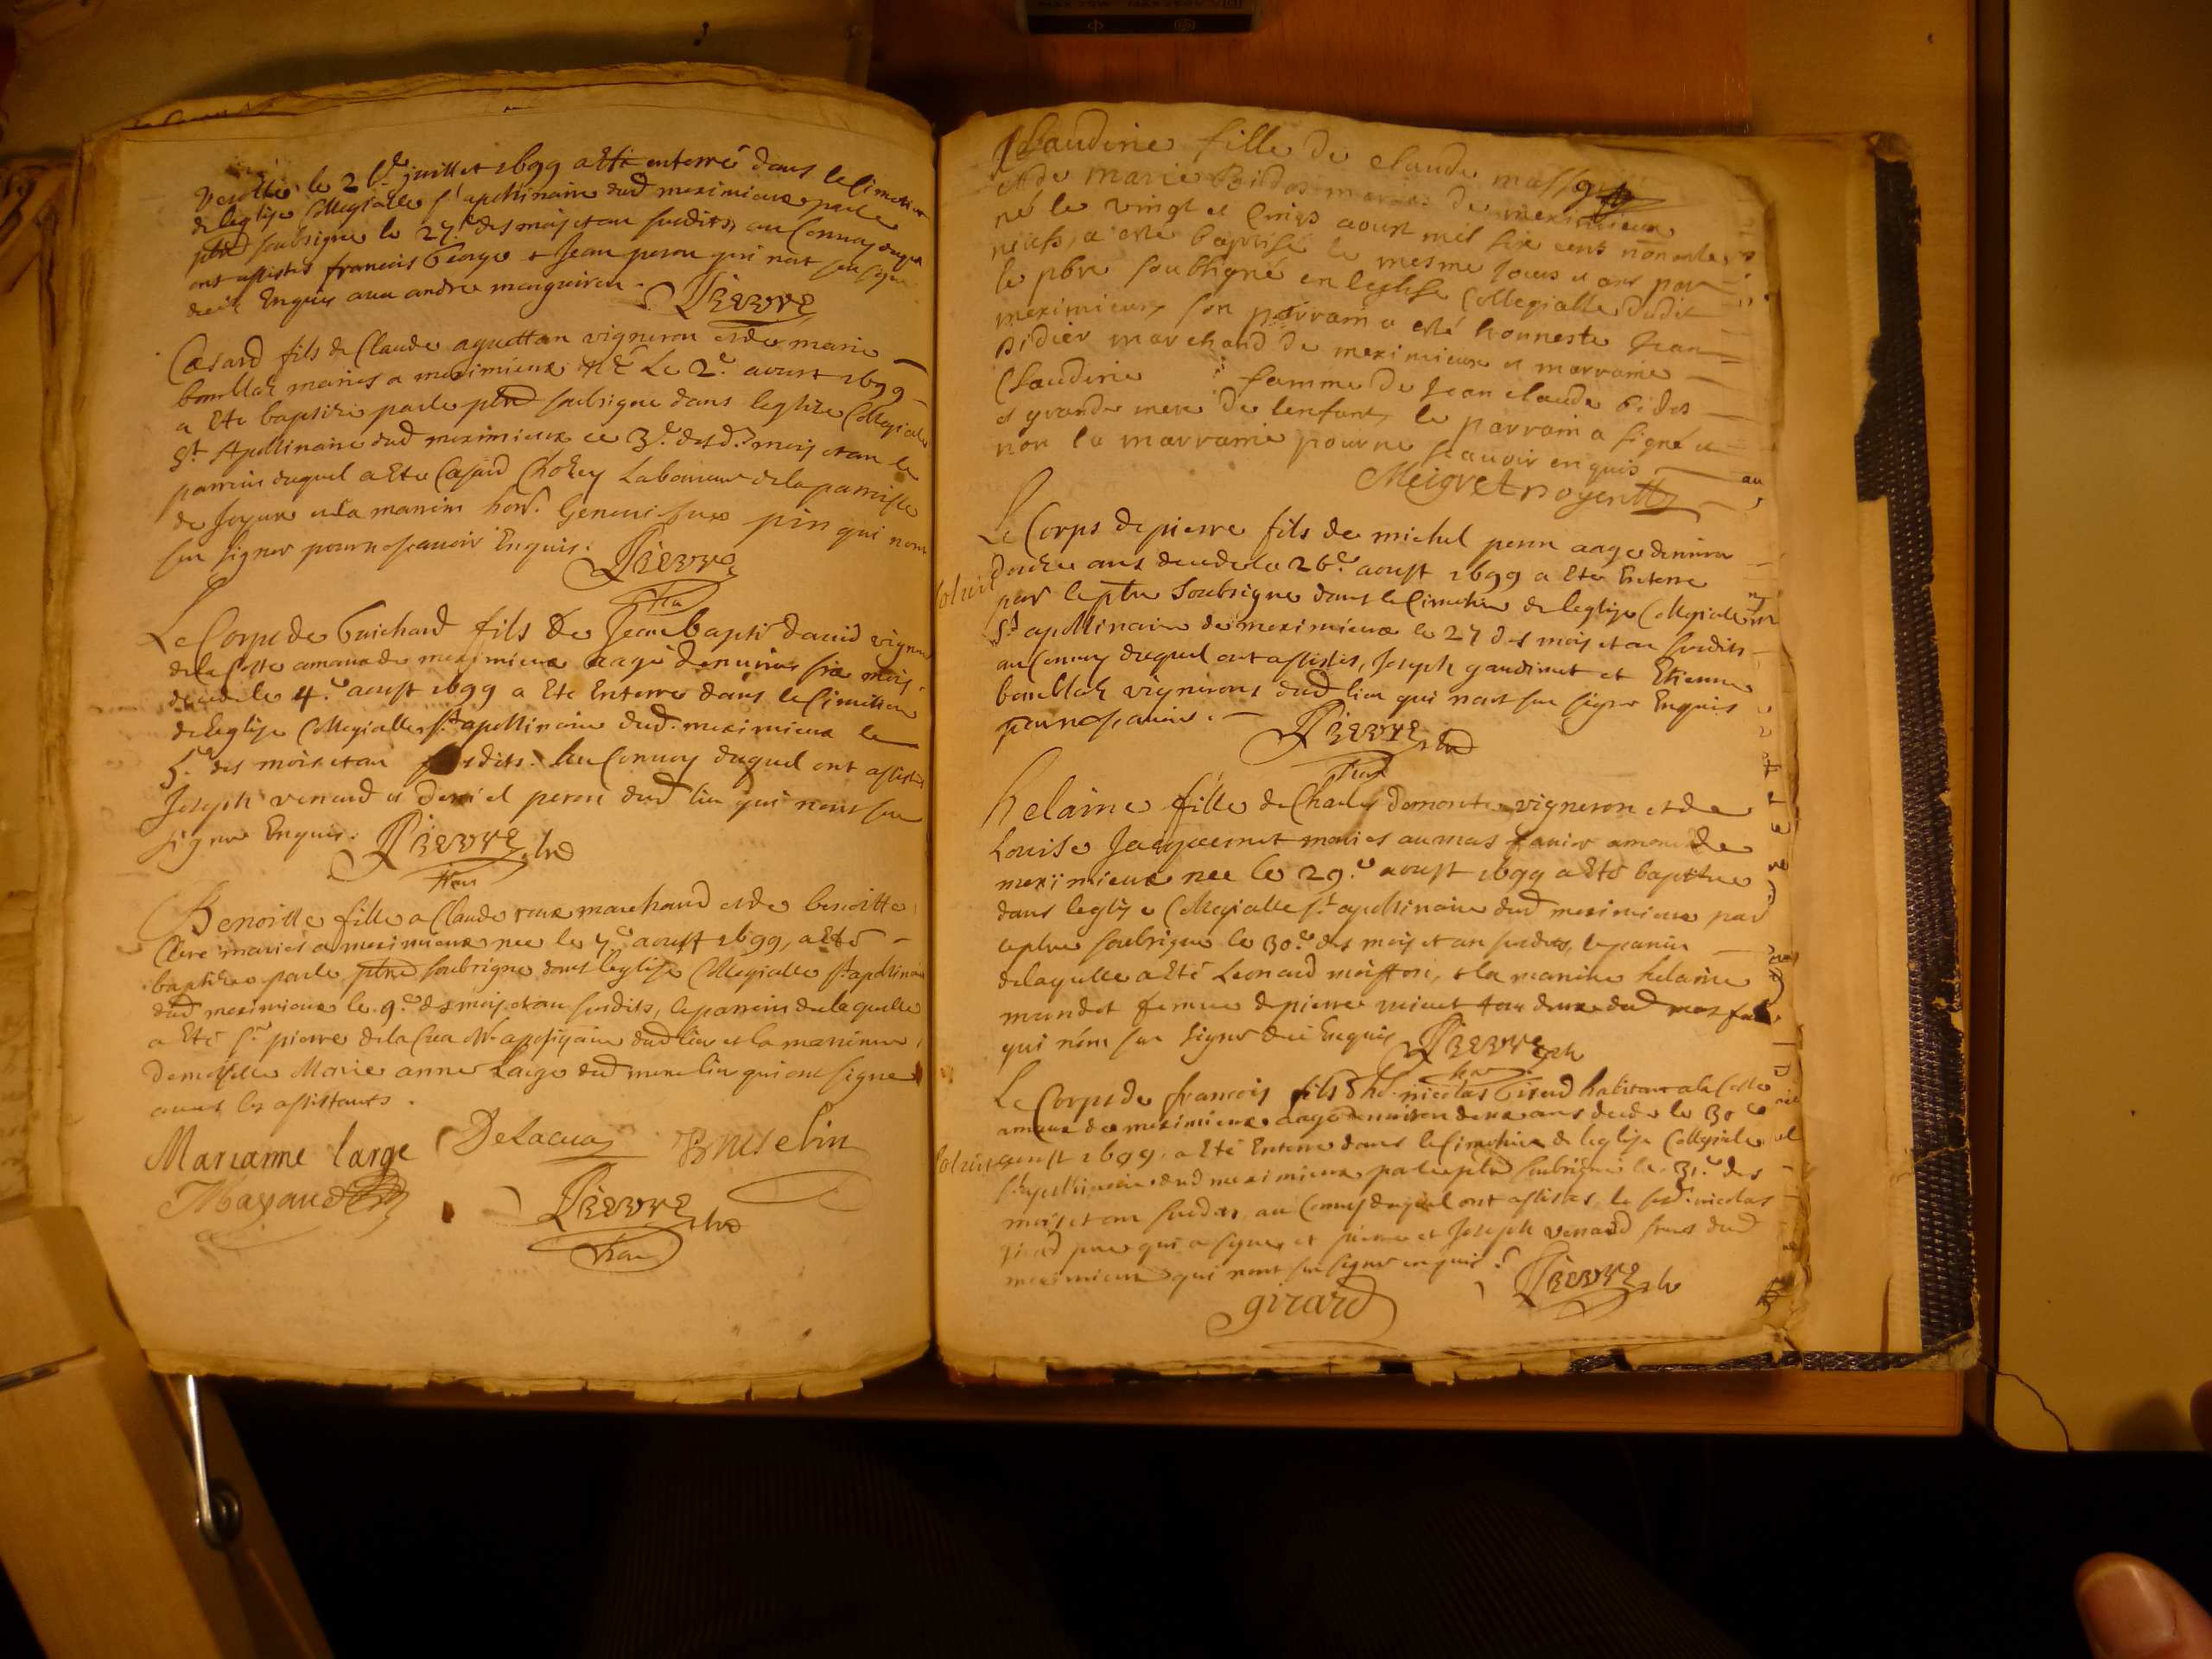 le 26e juillet 1699 a été enterré dans le Cimetiere
de leglise Collegialle St apollinaire dud meximieux par le
pbre soubsigne le 27e des mois et an susdits, au Convoy duquel
ont assistes francois George et Jean peron qui nont sceu signer
de ce Enquis avec andre
Pierre
Cæsard fils de Claude aguettan vigneron et de marie
bouillioz maries a meximieux né Le 2e aoust 1699
a Ete baptize par le pbre soubsigne dans leglize Collegialle
St Apollinaire dud meximieux ce 3e desd. mois et an le
parrin duquel a Ete Cæsard Laboureur de la parroisse
de Joyeux et la marrine hon. Genevi pin qui nont
sceu signer pour ne scavoir Enquis.
Pierre
Le Corps de Guichard fils de Jean bapt david vigneron
de la Coste amanade meximieux aagé denviron six mois
decede le 4e aoust 1699 a Ete Enterre dans le Cimitiere
de leglise Collegialle St apollinaire dud. meximieux le
5e des mois et an susdits. Au Convoy duquel ont assistes
Joseph venard et peron dud lieu qui nont sceu
signer Enquis. Pierre pbre
Benoitte fille a Claude roux marchand et de benoitte
Clere maries a meximieux nee le 7e aoust 1699, a Eté
baptizee par le pbre soubsigne dans leglise Collegialle St apollinaire
dud meximieux le 9e des mois et an susdits, le parrin de laquelle
a Eté Sr pierre de la Cua dud lieu et la marrine
Demoiselle Marie anne Large dud mesme lieu qui ont signe
avec les assistants.
Marianne large Delacua Brusselin
Pierre pbre
Claudine fille de claude
et de marie Bidos maries de meximieux
né le vingt et Cinq aoust mil six cens nonante
neuf, a esté baptisé le mesme jour et ans par
le pbre soubsigné en leglise Collegialle dudit
meximieux son parrain a esté honneste Jean
Didier marchand de meximieux et marraine
Claudine femme de Jean claude Bidos
et grande mere de lenfant, le parrain a signé et
non la marraine pour ne scavoir enquis
Le Corps de pierre fils de michel peron aage denviron
douze ans decede le 26e aoust 1699 a Ete Enterre
par le pbre Soubsigne dans le Cimetiere de leglise Collegialle
St apollinaire de meximieux le 27 des mois et an susdits
au Convoy duquel ont assistes, Joseph gaudinet et Etienne
bouillioz vignerons dud lieu qui nont sceu signer Enquis
pour ne scavoir. Pierre pbre
helaine fille de Charles Demonte vigneron et de
Louise Jacquemet maries au mas amanade
meximieux nee le 29e aoust 1699 a Eté baptizee
dans leglise Collegialle St apollinaire dud meximieux par
le pbre soubsigne le 30e des mois et an susdits, le parrin
de laquelle a Eté Leonard moisson, et la marrine helaine
mundet femme de pierre tous deux dud mas
qui nont sceu signer de ce Enquis Pierre pbre
Le Corps de francois fils d hd. nicolas Girard habitant a la Coste
amanade meximieux aagé denviron deux ans decede le 30e
aoust 1699, a Eté Enterre dans le Cimetiere de leglise Collegialle
St apollinaire dud meximieux par le pbre soubsigne le 31e des
mois et an susdits au Convoy duquel ont assistes le sud. nicolas
girard pere qui a signe et pierre et Joseph venard freres dud
meximieux qui nont sceu signer enquis. Pierre pbre
girard